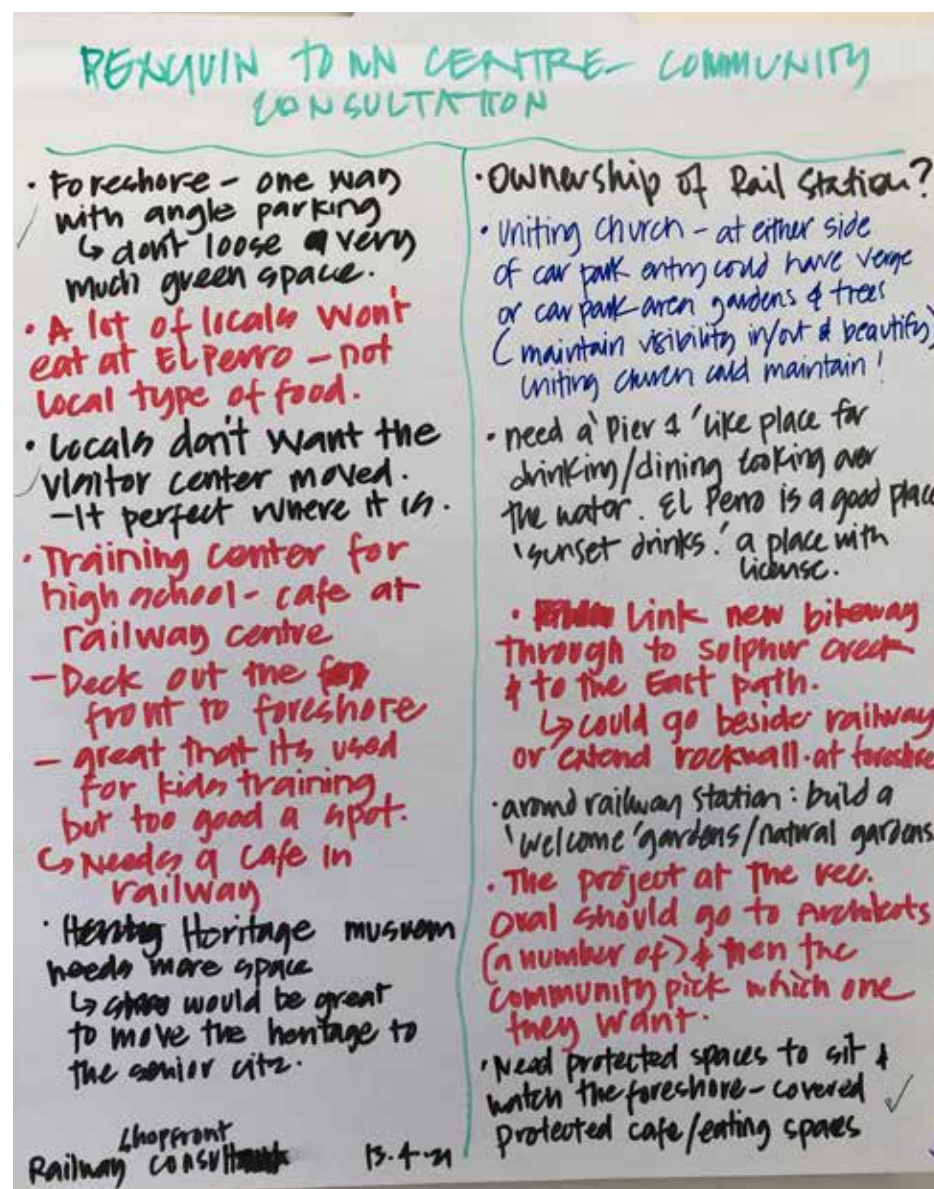 PENGUIN TOWN CENTRE - COMMUNITY
CONSULTATION
• Foreshore - one way
with angle parking
↳ dont loose a very
much green space.
• A lot of locals won't
eat at El Perro - not
local type of food.
• Locals don't want the
visitor center moved.
- It perfect where it is.
• Training center for
high school - cafe at
railway centre
- Deck out the
front to foreshore
- great that its used
for kids training
but too good a spot.
↳ Needs a cafe in
railway
• Heritage museum
needs more space
↳ would be great
to move the heritage to
the senior citz.
Shopfront
Railway consult
13-4-21
• Ownership of Rail Station?
• Uniting Church - at either side
of car park entry could have verge
or car park area gardens & trees
(maintain visibility in/out & beautify)
Uniting church could maintain!
• need a 'Pier 1' like place for
drinking/dining looking over
the water. El Perro is a good place
'sunset drinks.' a place with
license.
• Link new bikeway
through to Sulphur Creek
& to the East path.
↳ could go beside railway
or extend rockwall at foreshore
• around railway station: build a
'welcome' gardens/natural gardens.
• The project at the rec.
Oval should go to Architects
(a number of) & then the
community pick which one
they want.
• Need protected spaces to sit &
watch the foreshore - covered ✓
protected cafe/eating spaces